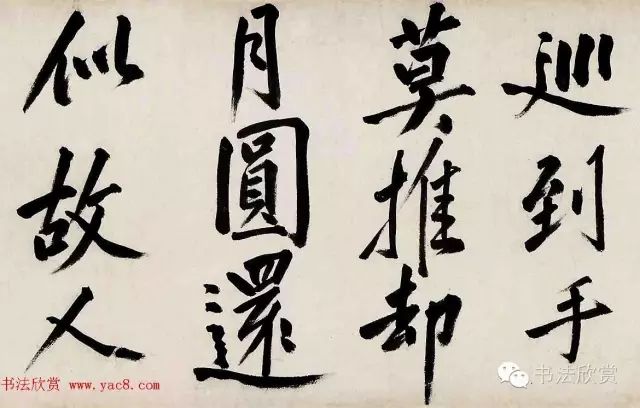 巡到手
莫推却
月圓還
似故人
书法欣赏 www.yac8.com
书法欣赏